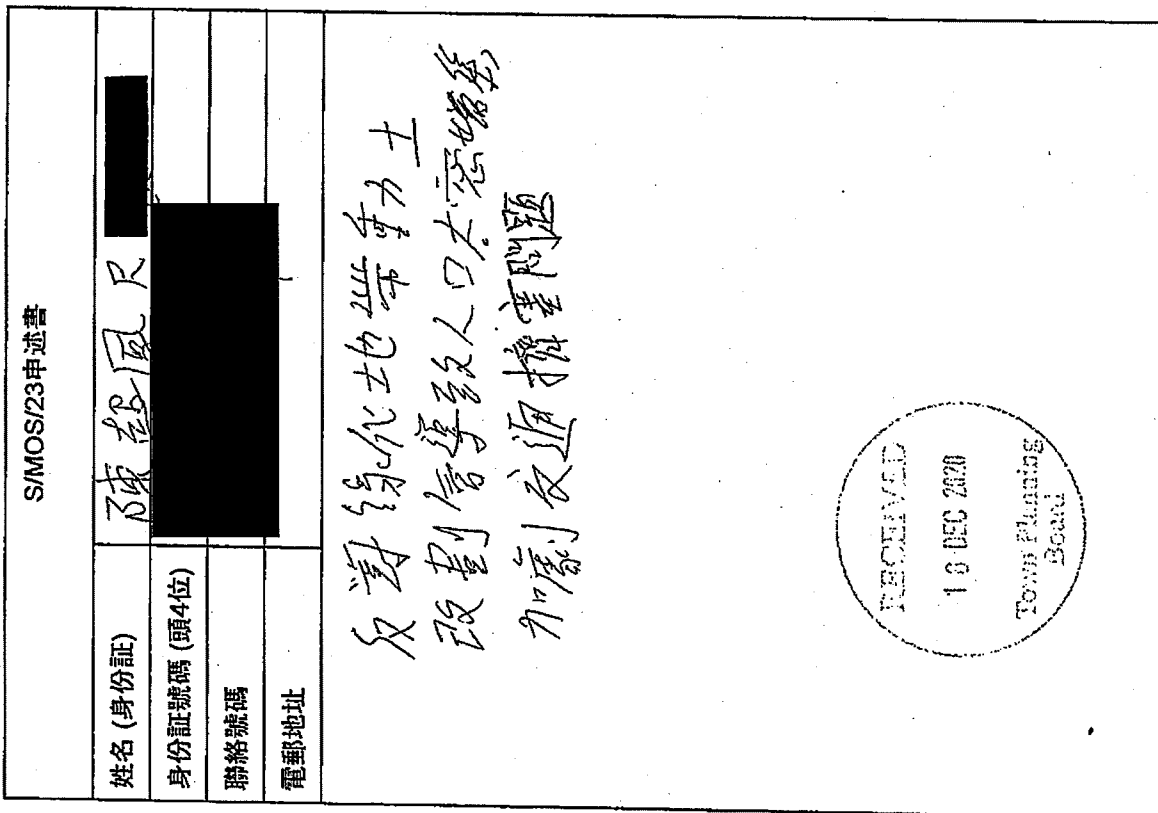 S/MOS/23申述書
姓名 (身份証)
陳
身份証號碼 (頭4位)
聯絡號碼
電郵地址
反對綠化地帶
改劃會導致人口太密集
加劇交通擠塞問題
RECEIVED
18 DEC 2020
Town Planning
Board